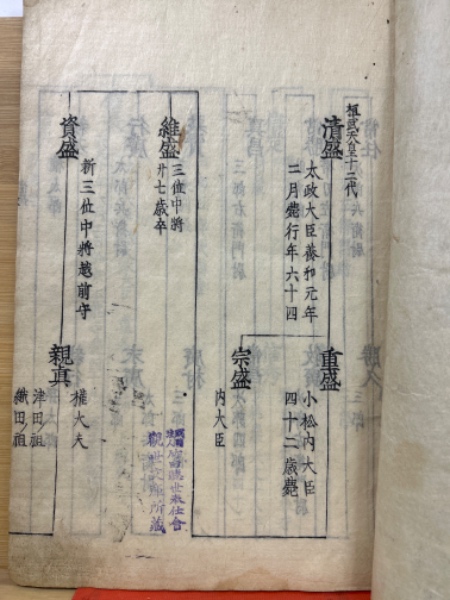 桓武天皇十二代
清盛
太政大臣養和元年
二月薨行年六十四
重盛
小松内大臣
四十二歳薨
宗盛
内大臣
維盛
三位中将
廿七歳卒
資盛
新三位中将越前守
親真
権大夫
津田ノ祖
織田ノ祖
観世文庫所蔵